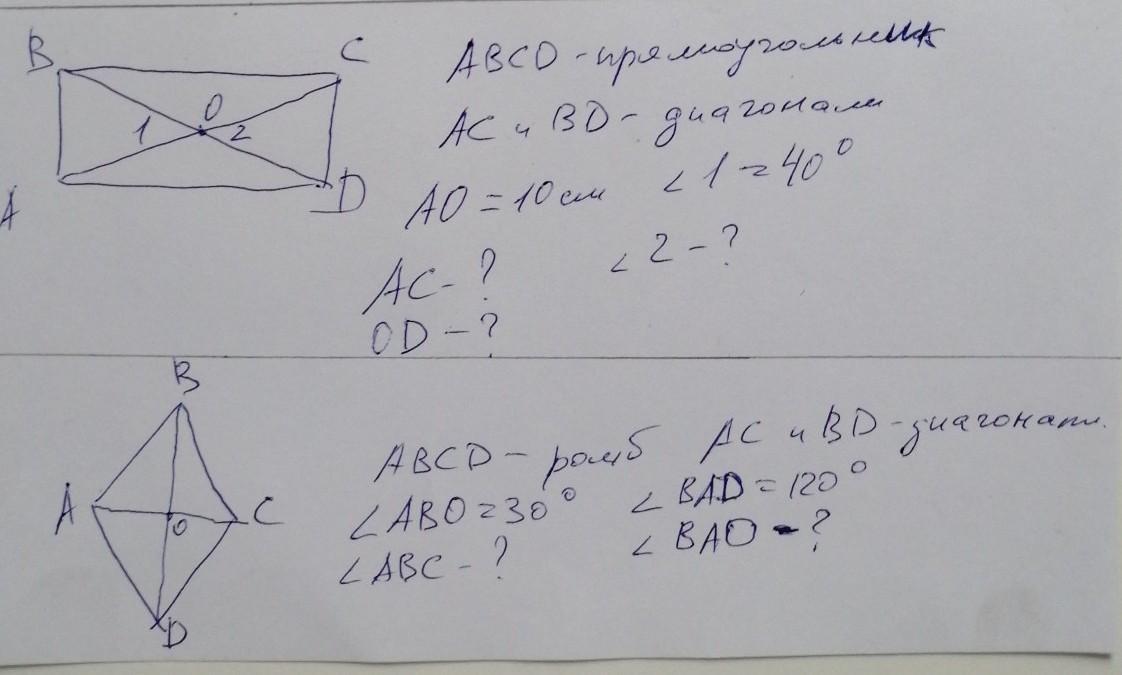 B C
O
1 2
A D
ABCD - прямоугольник
AC и BD - диагонали
AO = 10 см ∠1 = 40°
AC - ? ∠2 - ?
OD - ?
B
A C
O
D
ABCD - ромб AC и BD - диагонали.
∠ABO = 30° ∠BAD = 120°
∠ABC - ? ∠BAO - ?